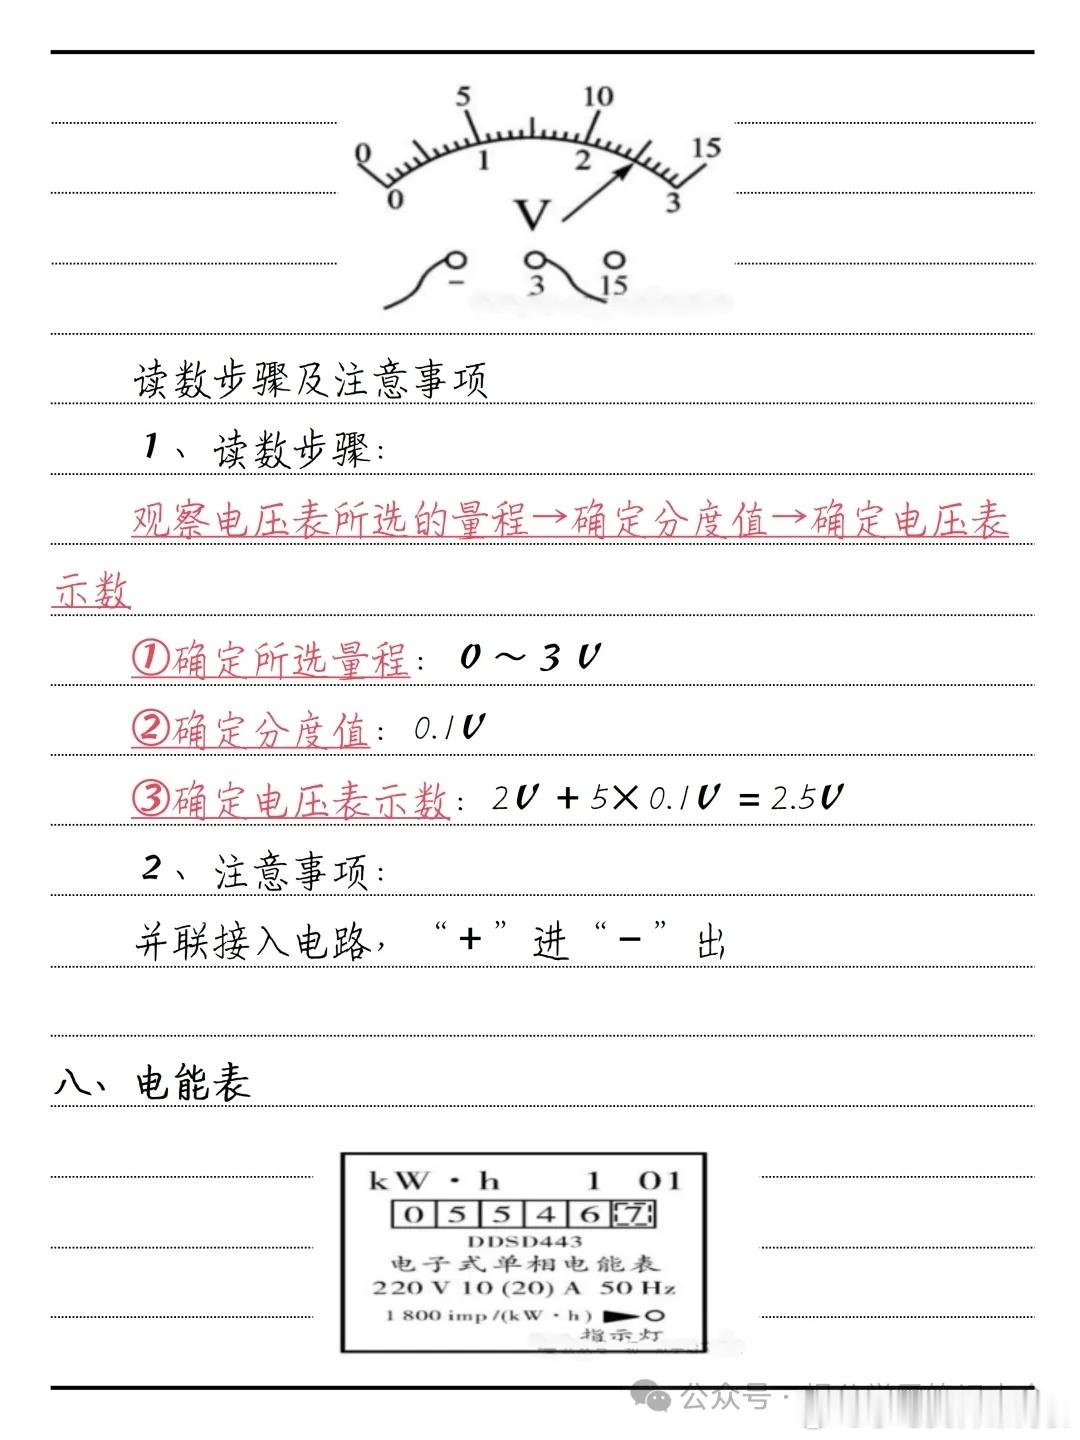 5 10
0 15
0 1 2 3
V
− 3 15
读数步骤及注意事项
1、读数步骤：
观察电压表所选的量程→确定分度值→确定电压表
示数
①确定所选量程：0～3V
②确定分度值：0.1V
③确定电压表示数：2V+5×0.1V=2.5V
2、注意事项：
并联接入电路，“+”进“−”出
八、电能表
kW·h 1 01
0 5 5 4 6 7
DDSD443
电子式单相电能表
220 V 10 (20) A 50 Hz
1 800 imp/(kW·h)
指示灯
公众号·